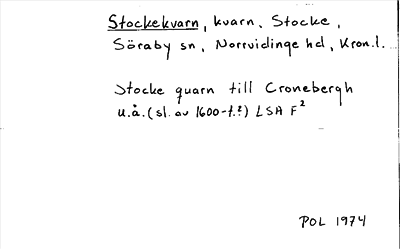 Stockekvarn, kvarn. Stocke,
Söraby sn, Norrvidinge hd, Kron.l.
Stocke quarn till Cronebergh
u.å. (sl. av 1600-t.?) LSA F²
POL 1974